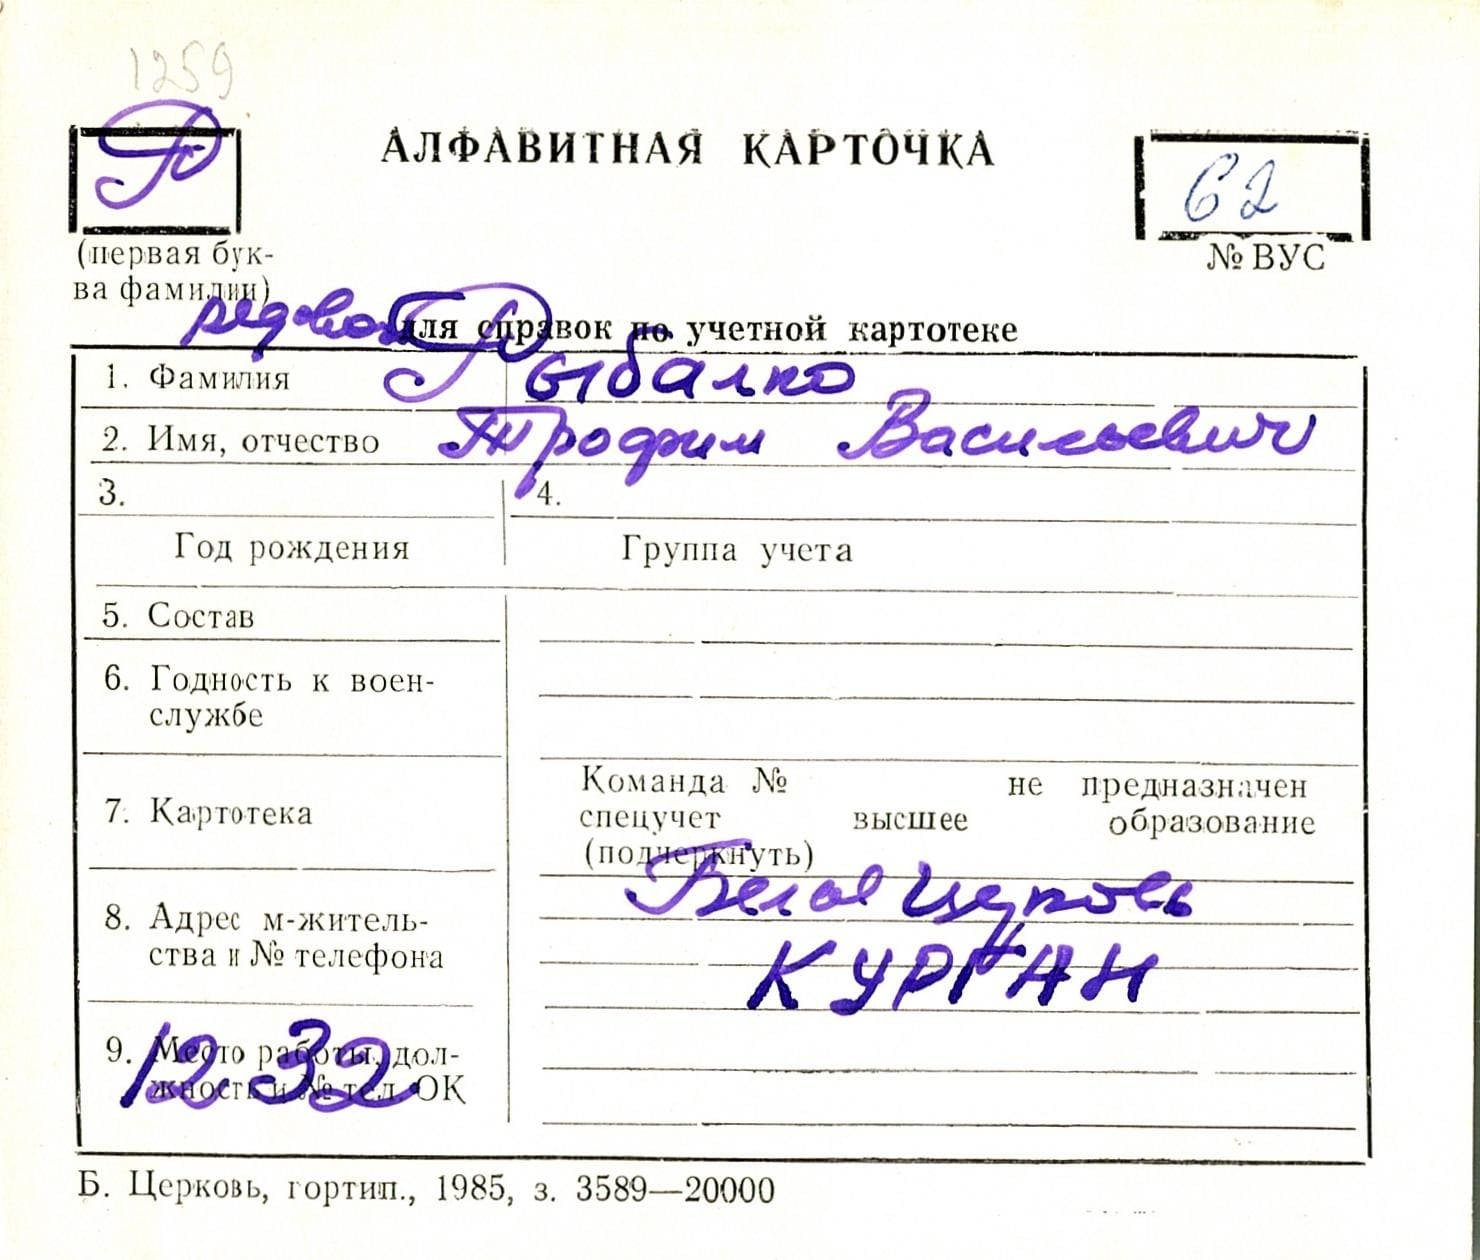 1259
Р
АЛФАВИТНАЯ КАРТОЧКА
62
(первая бук-
ва фамилии)
№ ВУС
рядовой
для справок по учетной картотеке
1. Фамилия Рыбалко
2. Имя, отчество Трофим Васильевич
3. 4.
Год рождения Группа учета
5. Состав
6. Годность к воен-
службе
7. Картотека
Команда № не предназначен
спецучет высшее образование
(подчеркнуть)
8. Адрес м-житель-
ства и № телефона
Белая Церковь
КУРГАН
9. Место работы, дол-
жность и № тел. ОК
12 32
Б. Церковь, гортип., 1985, з. 3589—20000